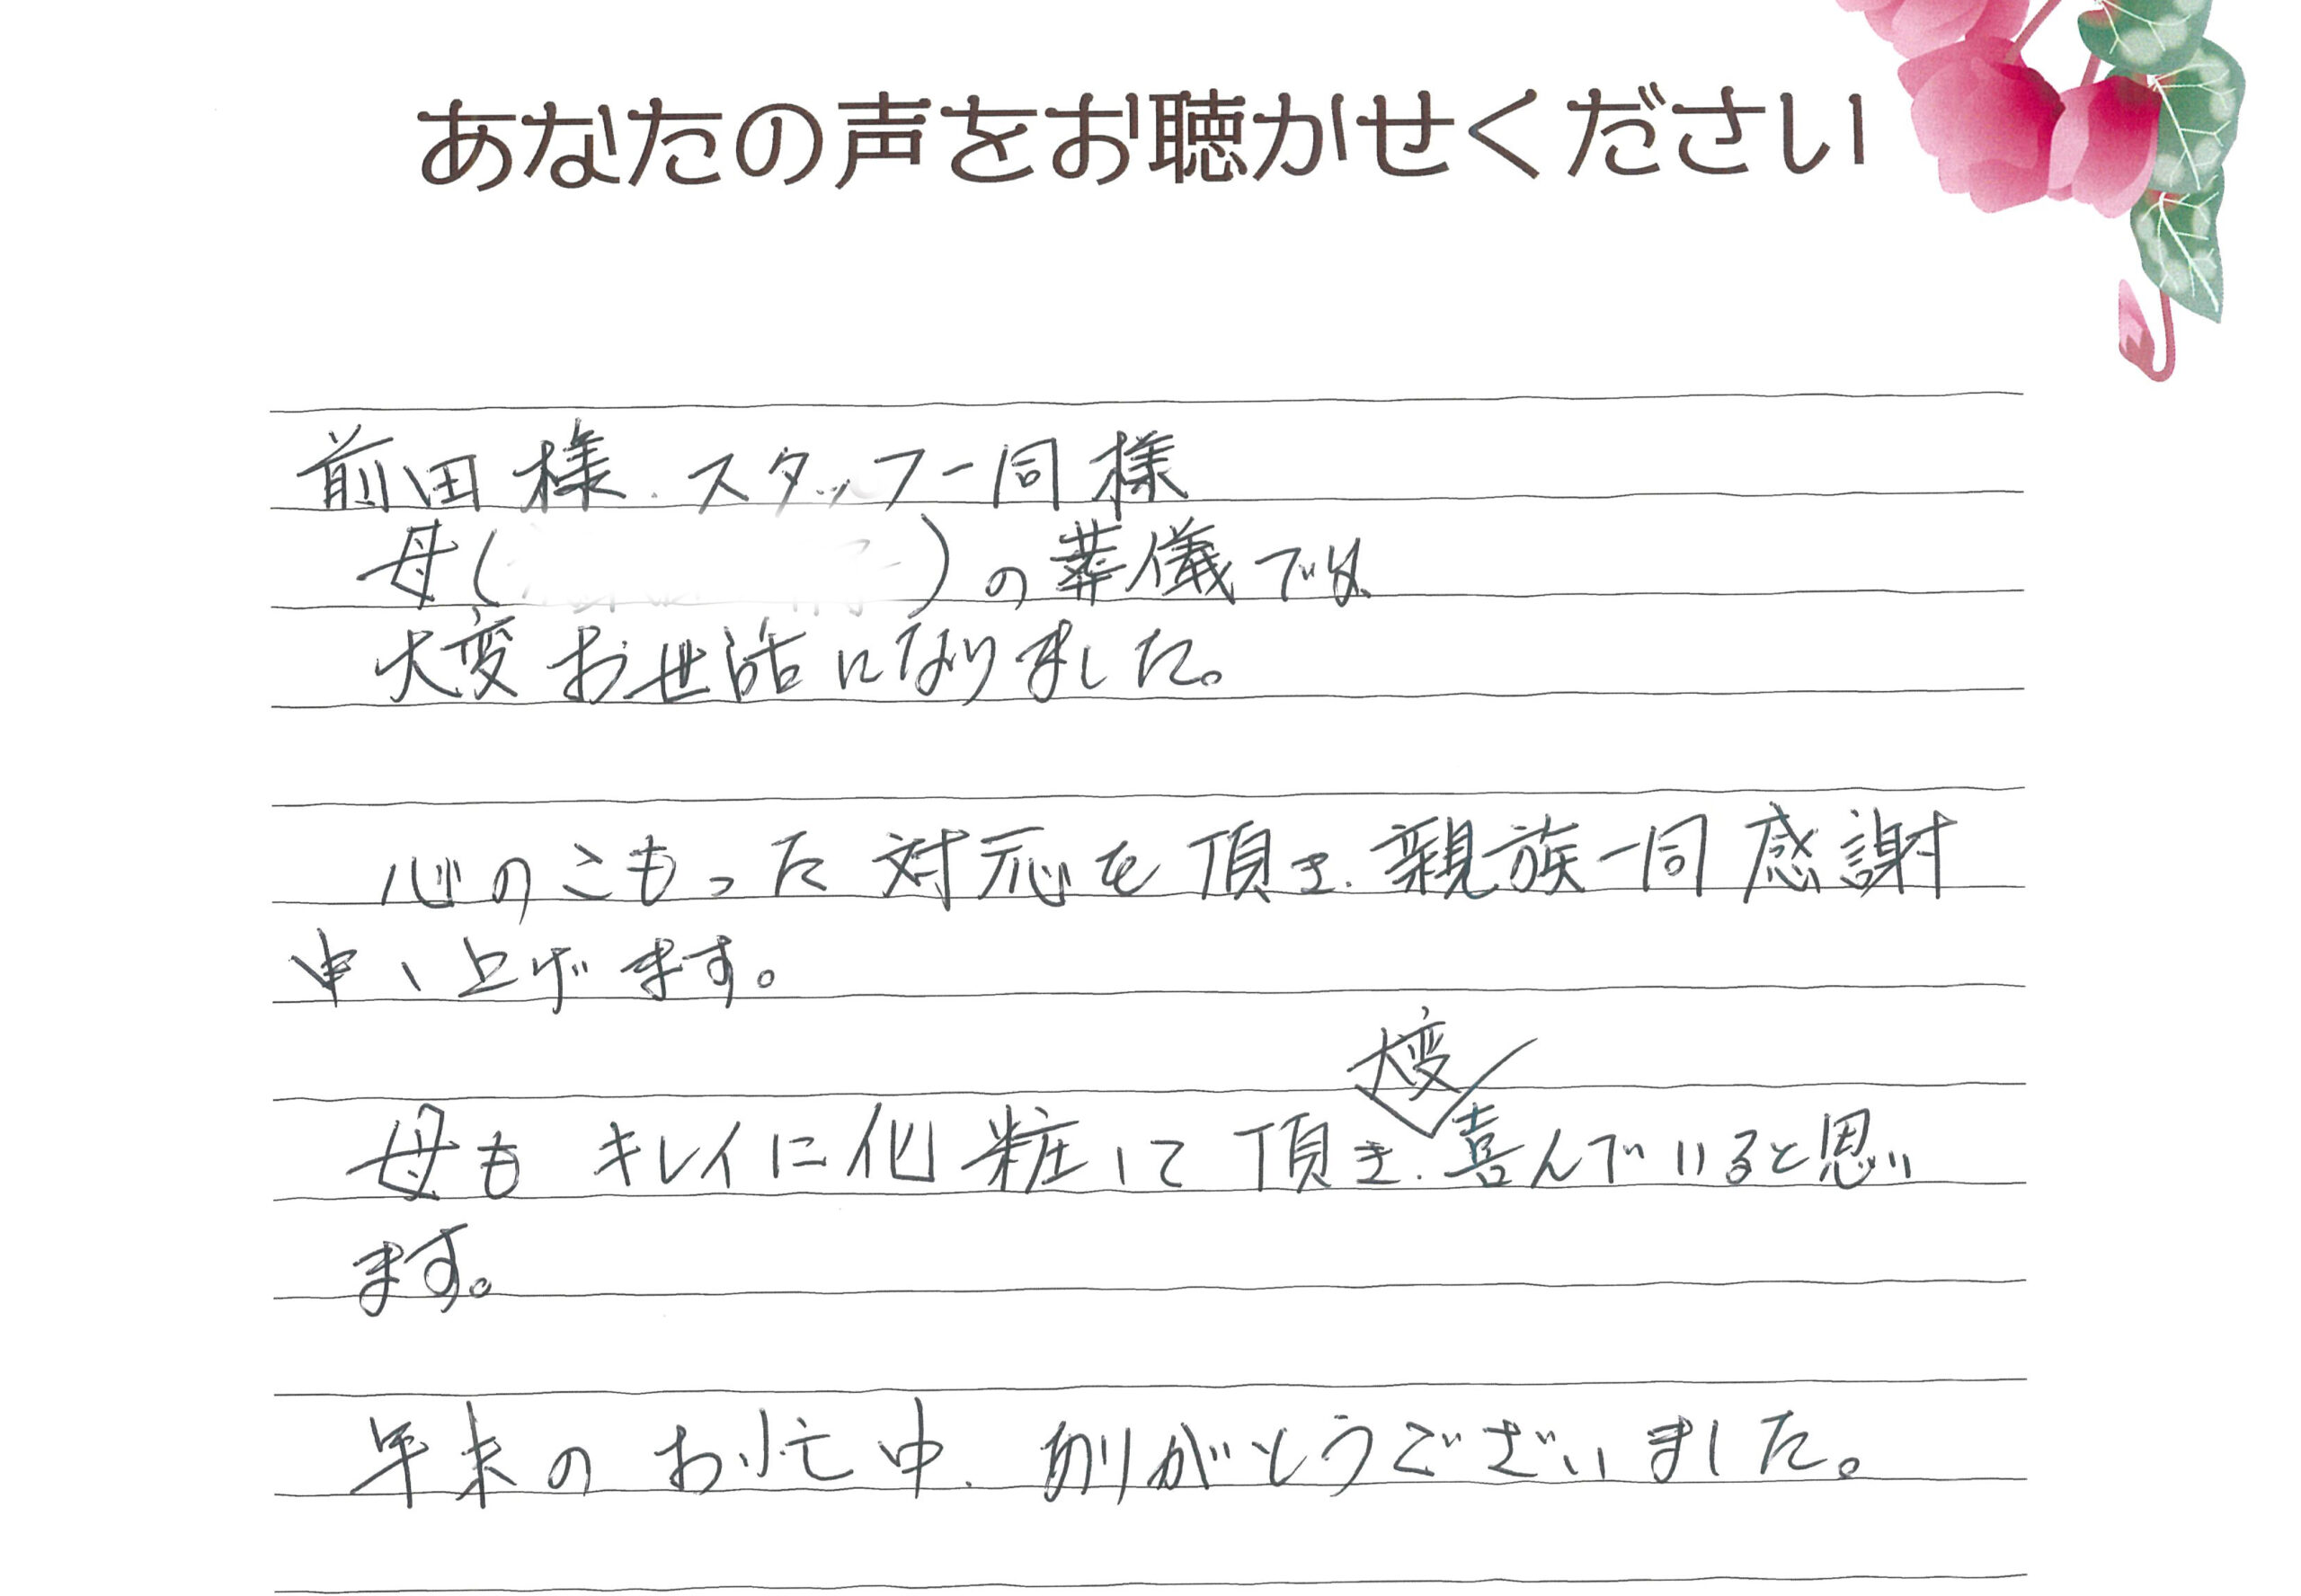 あなたの声をお聴かせください
前田様、スタッフ一同様
母( )の葬儀では、
大変お世話になりました。
心のこもった対応を頂き、親族一同感謝
申し上げます。
大変
母もキレイに化粧して頂き、喜んでいると思い
ます。
年末のお忙中、ありがとうございました。